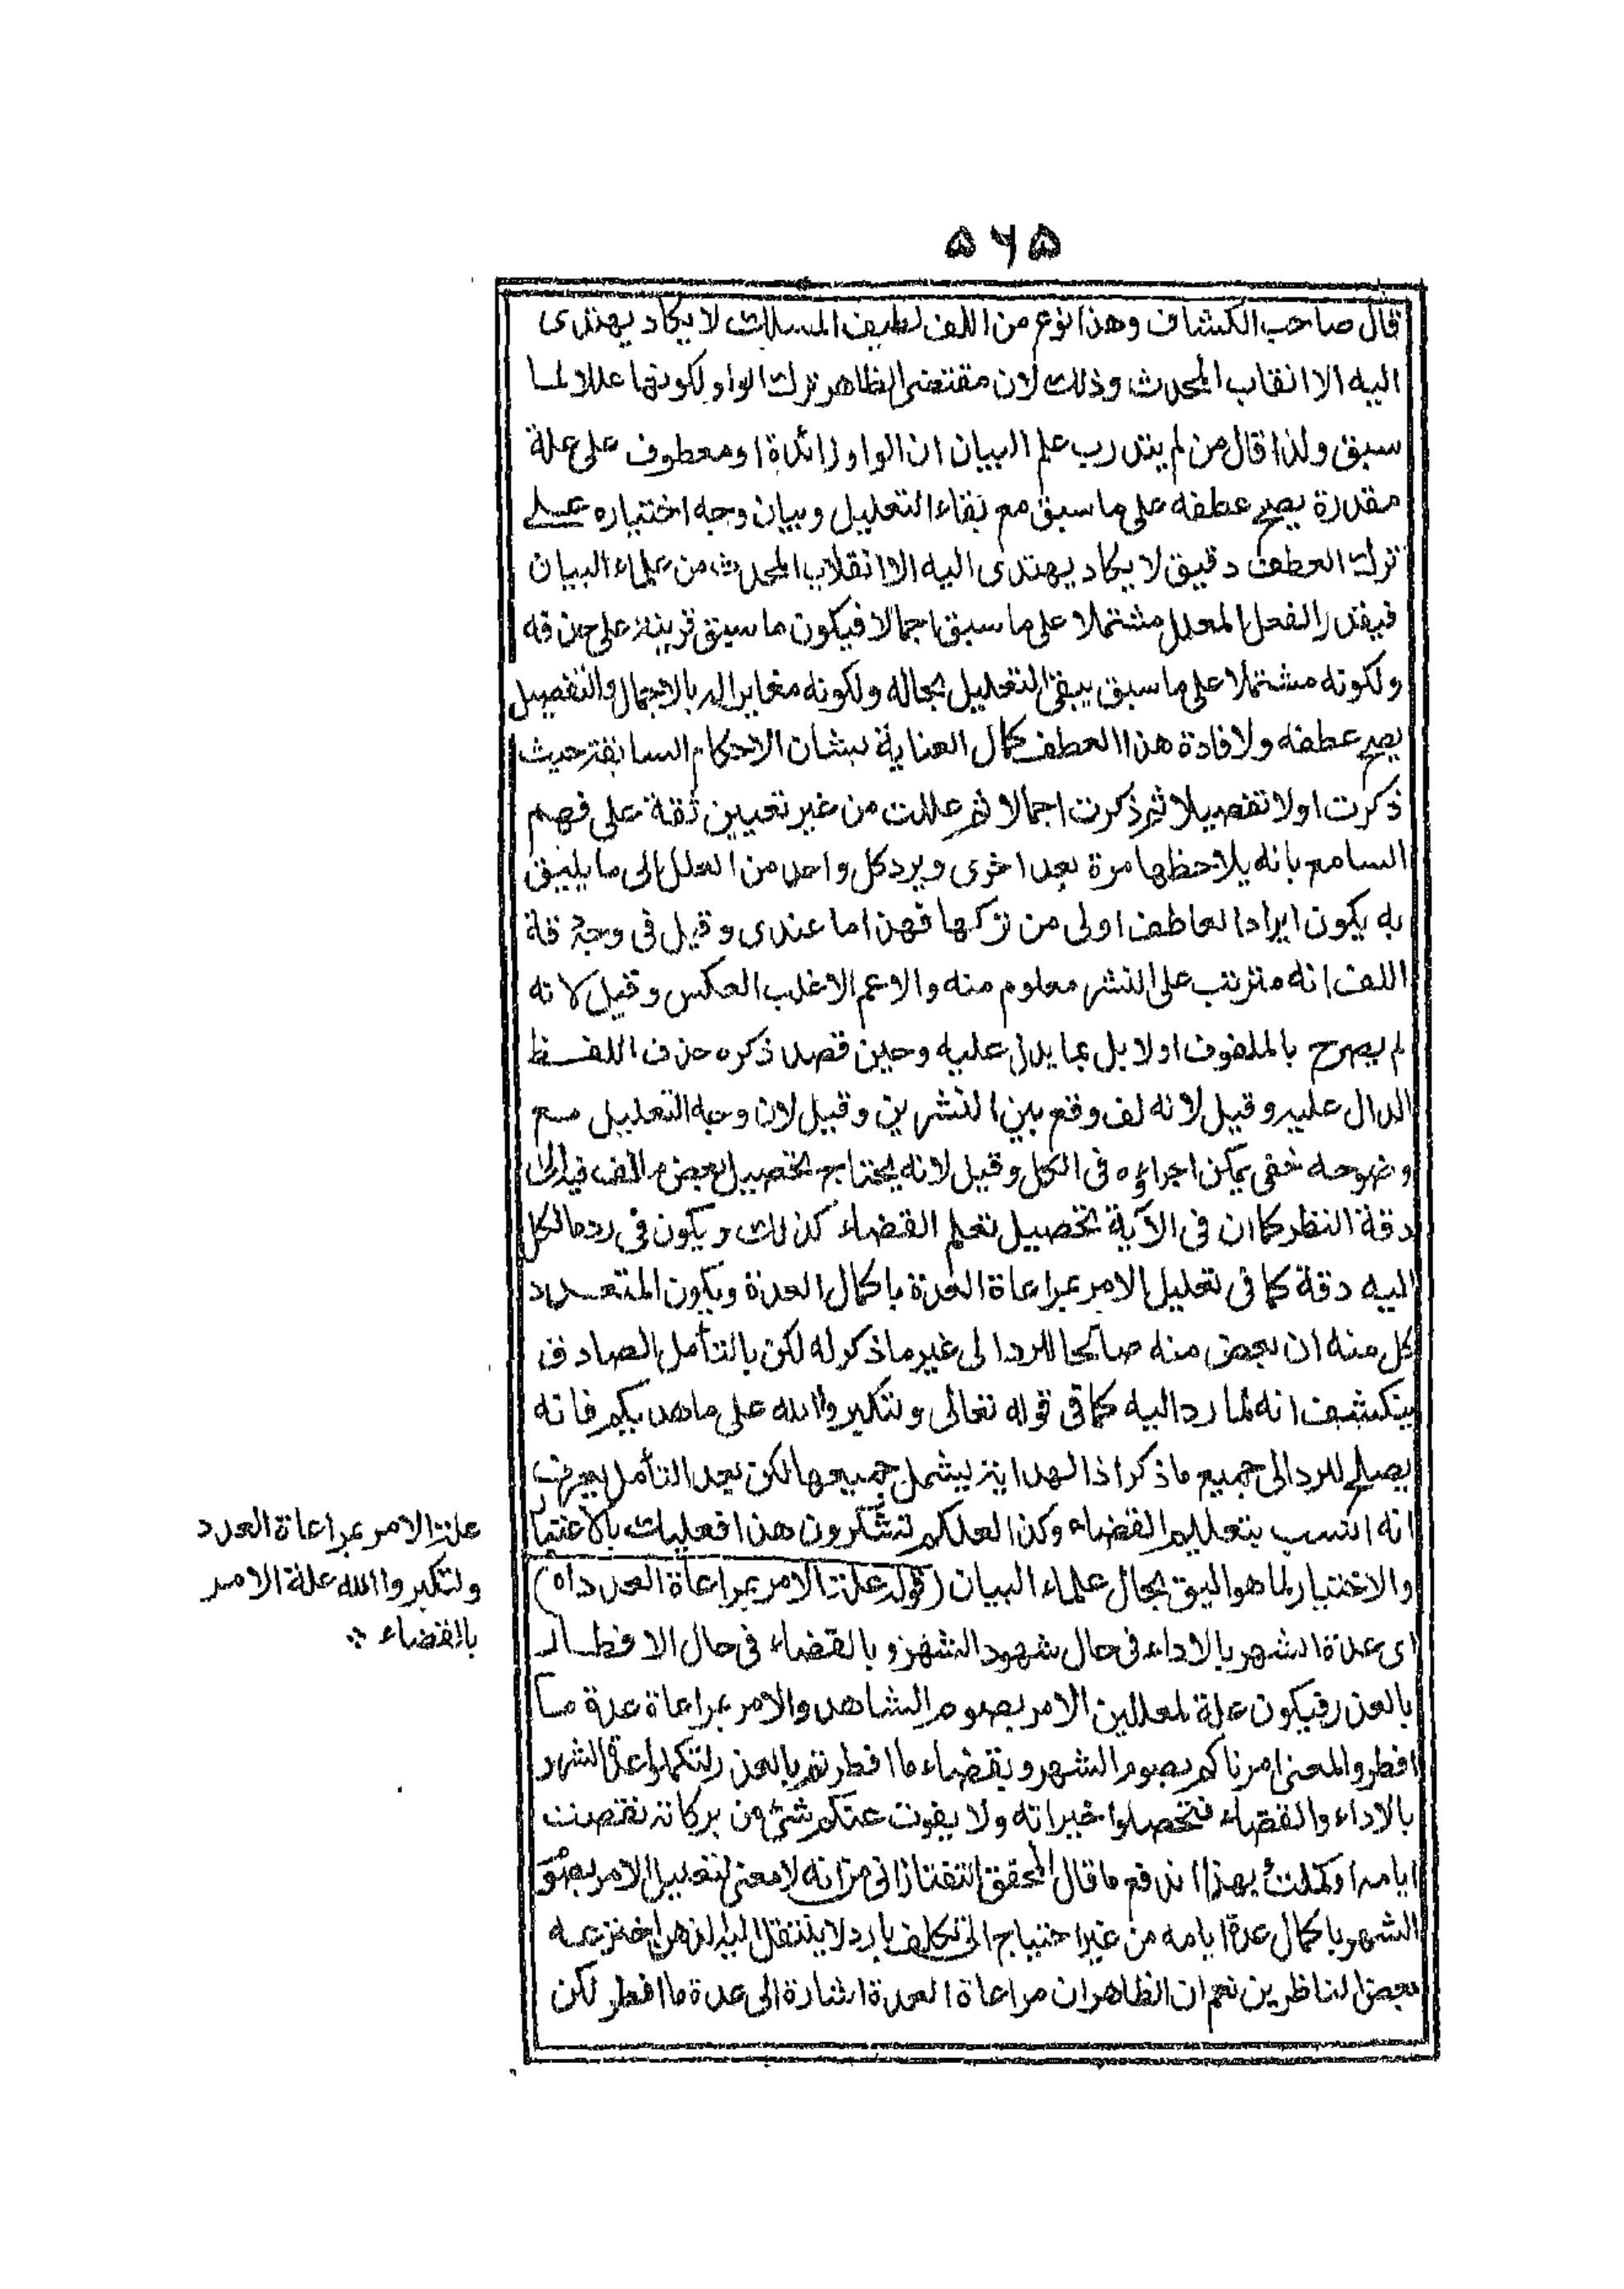 ۵۶۵
قال صاحب الكشاف وهذا نوع من اللف لطيف المسلك لا يكاد يهتدى
اليه الا النقاب المحدث وذلك لان مقتضى الظاهر ترك الواو لكونها عللا لما
سبق ولذا قال من لم يتدرب علم البيان ان الواو زائدة او معطوف على علة
مقدرة يصح عطفه على ما سبق مع بقاء التعليل وبيان وجه اختياره على
ترك العطف دقيق لا يكاد يهتدى اليه الا النقاب المحدث من علماء البيان
فيقدر الفعل المعلل مشتملا على ما سبق اجمالا فيكون ما سبق قرينة على حذفه
ولكونه مشتملا على ما سبق يبقى التعليل بحاله ولكونه مغايرا له بالاجمال والتفصيل
يصح عطفه ولافادة هذا العطف كمال العناية بشان الاحكام السابقة حيث
ذكرت اولا تفصيلا ثم ذكرت اجمالا ثم عللت من غير تعيين ثقة على فهم
السامع بانه يلاحظها مرة بعد اخرى ويرد كل واحد من العلل الى ما يليق
به يكون ايراد العاطف اولى من تركها فهذا ما عندى وقيل فى وجه دقة
اللف انه مترتب على النشر معلوم منه والاعم الاغلب العكس وقيل لانه
لم يصرح بالملفوف اولا بل بما يدل عليه وحين قصد ذكره حذف اللفظ
الدال عليه وقيل لانه لف وقع بين النشرين وقيل لان وجه التعليل مع
وضوحه خفى يمكن اجراؤه فى الكل وقيل لانه يحتاج تحصيل بعض اللف
دقة النظر كما ان فى الآية تحصيل تعلم القضاء كذلك ويكون فى رد ما لكل
اليه دقة كما فى تعليل الامر بمراعاة العدة باكمال العدة ويكون المتعدد
كل منه ان بعض منه صالحا للرد الى غير ما ذكر له لكن بالتأمل الصادق
ينكشف انه لما رد اليه كما فى قوله تعالى ولتكبروا الله على ما هدىكم فانه
يصلح للرد الى جميع ما ذكر اذ الهداية يشمل جميعها لكن بعد التأمل يعرف
انه انسب بتعليم القضاء وكذا لعلكم تشكرون هذا فعليك بالاعتبا
والاختيار لما هو اليق بحال علماء البيان (قوله علة الامر بمراعاة العدد اه)
اى عدة الشهر بالاداء فى حال شهود الشهر وبالقضاء فى حال الافطار
بالعذر فيكون علة لمعللين الامر بصوم الشاهد والامر بمراعاة عدة ما
افطر والمعنى امرناكم بصوم الشهر وبقضاء ما افطرتم بالعذر لتكملوا عدة الشهر
بالاداء والقضاء فتحصلوا خيراته ولا يفوت عنكم شئ من بركاته نقصت
ايامه او كملت بهذا اندفع ما قال المحقق التفتازانى من انه لا معنى لتعليل الامر بصو
الشهر باكمال عدة ايامه من غير احتياج الى تكلف بارد لا ينتقل اليه الذهن اخترعه
بعض الناظرين نعم ان الظاهر ان مراعاة العدة اشارة الى عدة ما افطر لكن
علة الامر بمراعاة العدد
ولتكبروا الله علة الامر
بالقضاء